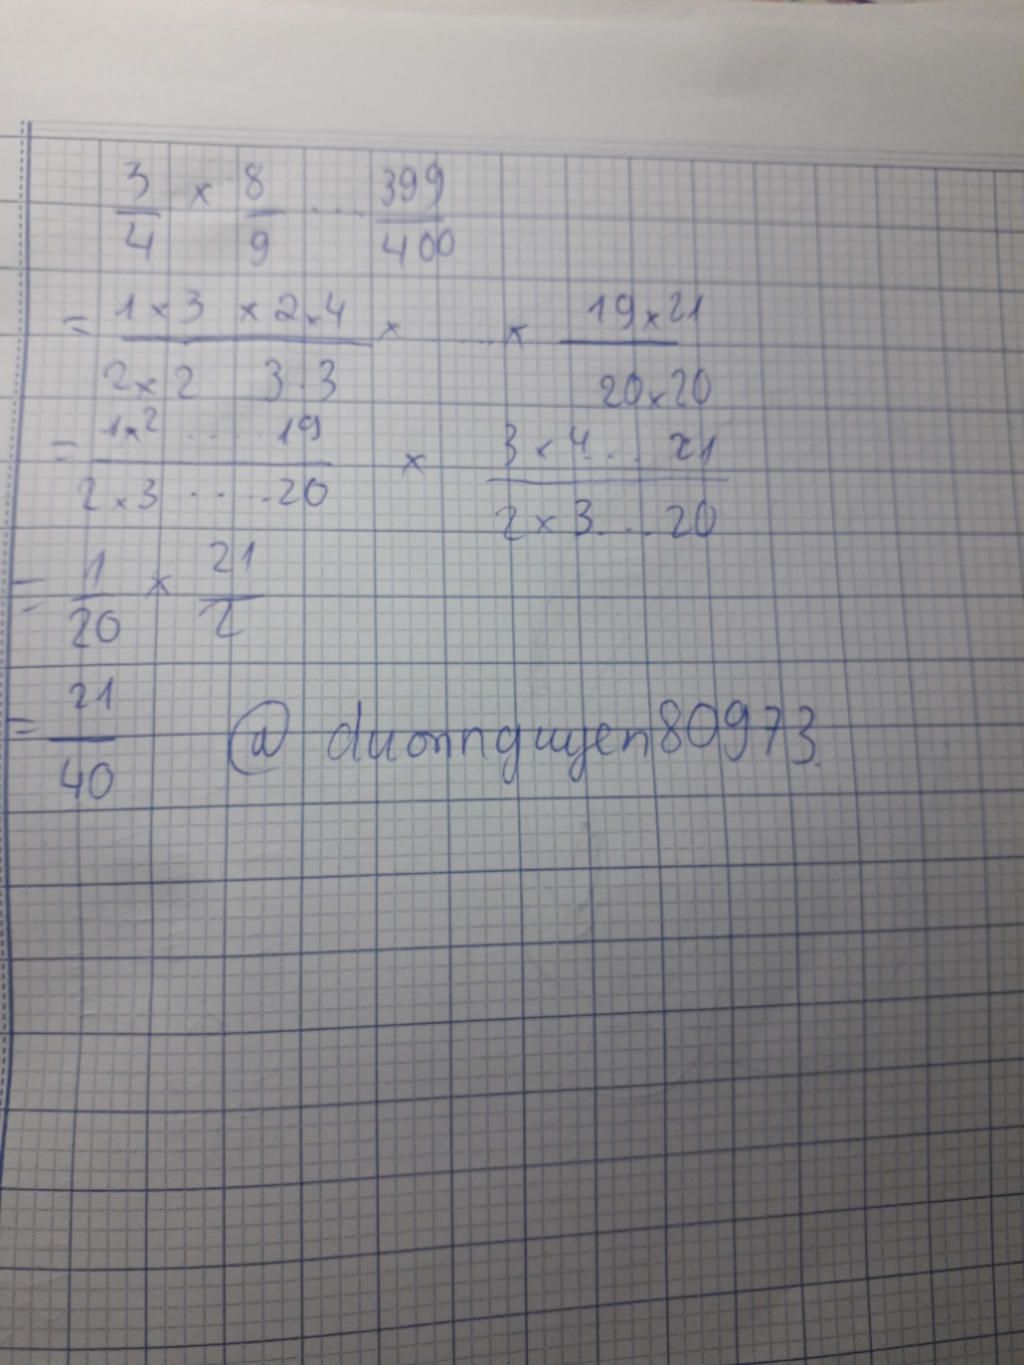 3/4 × 8/9 ..... 399/400
= 1×3 × 2×4 / 2×2 3.3 × ..... × 19×21 / 20×20
= 1×2 ..... 19 / 2×3 ..... 20 × 3×4... 21 / 2×3... 20
= 1/20 × 21/2
= 21/40
@ duonnguyen80973